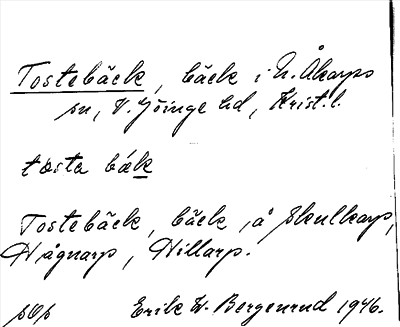 Tostebäck, bäck i N. Åkarps
sn, V. Göinge hd, Krist. l.
tɷsta bák
Tostebäck, bäck, å Skulkarp,
Hågnarp, Hillarp.
Erik W. Bergenrud 1946.